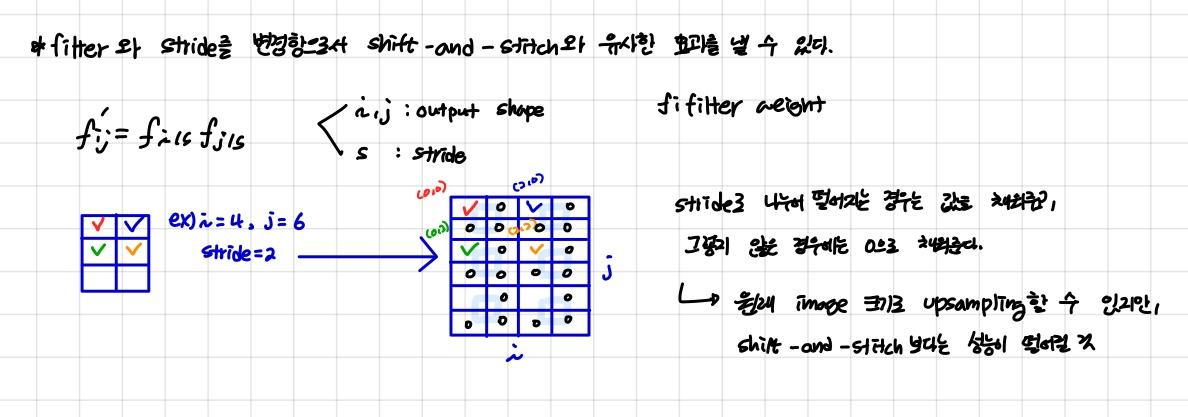 * filter와 stride를 변경함으로서 shift-and-stitch와 유사한 효과를 낼 수 있다.
f'ij = fi/s fj/s
i,j : output shape
s : stride
f: filter weight
ex) i=4, j=6
stride=2
(0,0) (2,0)
(0,2) (2,2)
j
i
stride로 나누어 떨어지는 경우는 값을 채워주고,
그렇지 않은 경우에는 0으로 채워준다.
원래 image 크기로 upsampling할 수 있지만,
shift-and-stitch 보다는 성능이 떨어질 것